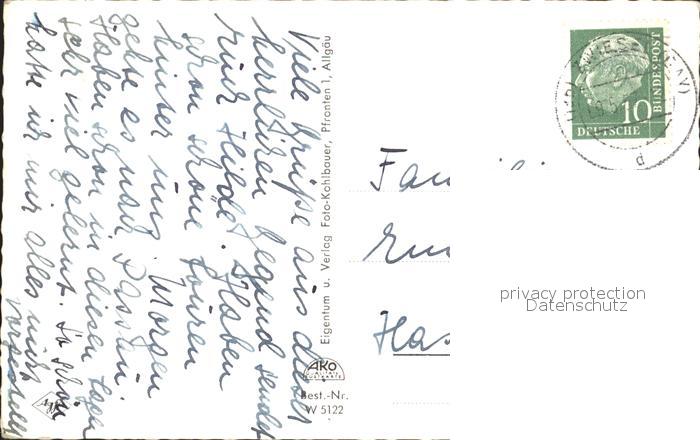 Viele Grüße aus dieser
herrlichen Gegend sendet
Eure Hilde. Haben
schon schöne Touren
hinter uns. Morgen
geht es nach Passau.
Haben schon in diesen Tagen
sehr viel gelernt. So schön
hatte ich mir alles nicht
vorgestellt
Eigentum u. Verlag Foto-Kohlbauer, Pfronten 1, Allgäu
AKO
Best.-Nr.
W 5122
BUNDESPOST
10
DEUTSCHE
d
Fam
Ha
privacy protection
Datenschutz